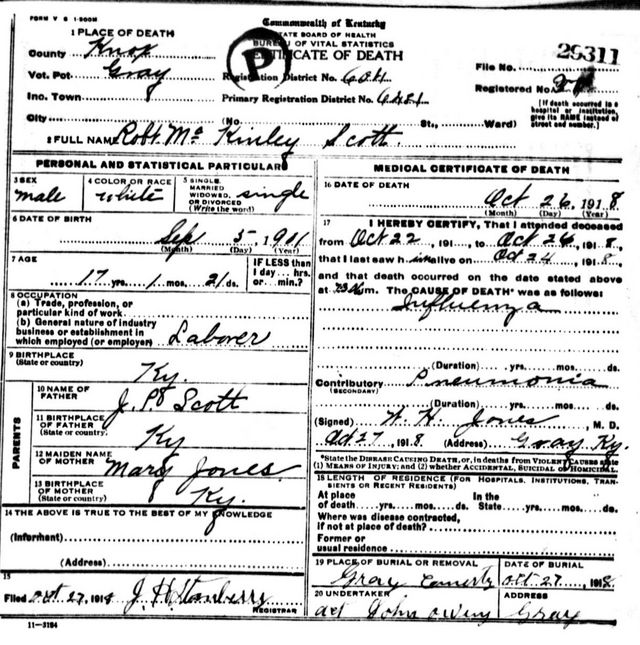 FORM V S 1-500M
Commonwealth of Kentucky
STATE BOARD OF HEALTH
BUREAU OF VITAL STATISTICS
CERTIFICATE OF DEATH
P
1 PLACE OF DEATH
County Knox
Vot. Pct Gray
Inc. Town
City (No. St., Ward)
Registration District No.
Primary Registration District No.
File No. 29311
Registered No.
[If death occurred in a hospital or institution, give its NAME instead of street and number.]
2 FULL NAME Robt Mc Kinley Scott
PERSONAL AND STATISTICAL PARTICULARS
3 SEX
male
4 COLOR OR RACE
white
5 SINGLE, MARRIED WIDOWED, OR DIVORCED (Write the word)
single
6 DATE OF BIRTH
Sep 5, 1901
(Month) (Day) (Year)
7 AGE
17 yrs. 1 mos. 21 ds.
IF LESS than 1 day ... hrs. or ... min.?
8 OCCUPATION
(a) Trade, profession, or particular kind of work
(b) General nature of industry business or establishment in which employed (or employer) Laborer
9 BIRTHPLACE
(State or country)
Ky.
PARENTS
10 NAME OF FATHER
J. P. Scott
11 BIRTHPLACE OF FATHER
(State or country)
Ky
12 MAIDEN NAME OF MOTHER
Mary Jones
13 BIRTHPLACE OF MOTHER
(State or country)
Ky.
14 THE ABOVE IS TRUE TO THE BEST OF MY KNOWLEDGE
(Informant)
(Address)
15
Filed Oct 27, 1918 J. H. Stanberry
REGISTRAR
11-3184
MEDICAL CERTIFICATE OF DEATH
16 DATE OF DEATH
Oct 26, 1918
(Month) (Day) (Year)
17 I HEREBY CERTIFY, That I attended deceased
from Oct 22, 191..., to Oct 26, 1918,
that I last saw him alive on Oct 24, 1918
and that death occurred on the date stated above
at m. The CAUSE OF DEATH* was as follows:
Influenza
(Duration) yrs. mos. ds.
Contributory Pneumonia
(SECONDARY)
(Duration) yrs. mos. ds.
(Signed) W. H. Jones, M. D.
Oct 27, 1918 (Address) Gray Ky.
*State the DISEASE CAUSING DEATH, or, in deaths from VIOLENT CAUSES state
(1) MEANS OF INJURY; and (2) whether ACCIDENTAL, SUICIDAL or HOMICIDAL.
18 LENGTH OF RESIDENCE (FOR HOSPITALS, INSTITUTIONS, TRANSIENTS OR RECENT RESIDENTS)
At place of death yrs. mos. ds.
In the State yrs. mos. ds.
Where was disease contracted,
if not at place of death?
Former or
usual residence
19 PLACE OF BURIAL OR REMOVAL
Gray
DATE OF BURIAL
Oct 27, 1918
20 UNDERTAKER
John Owens
ADDRESS
Gray